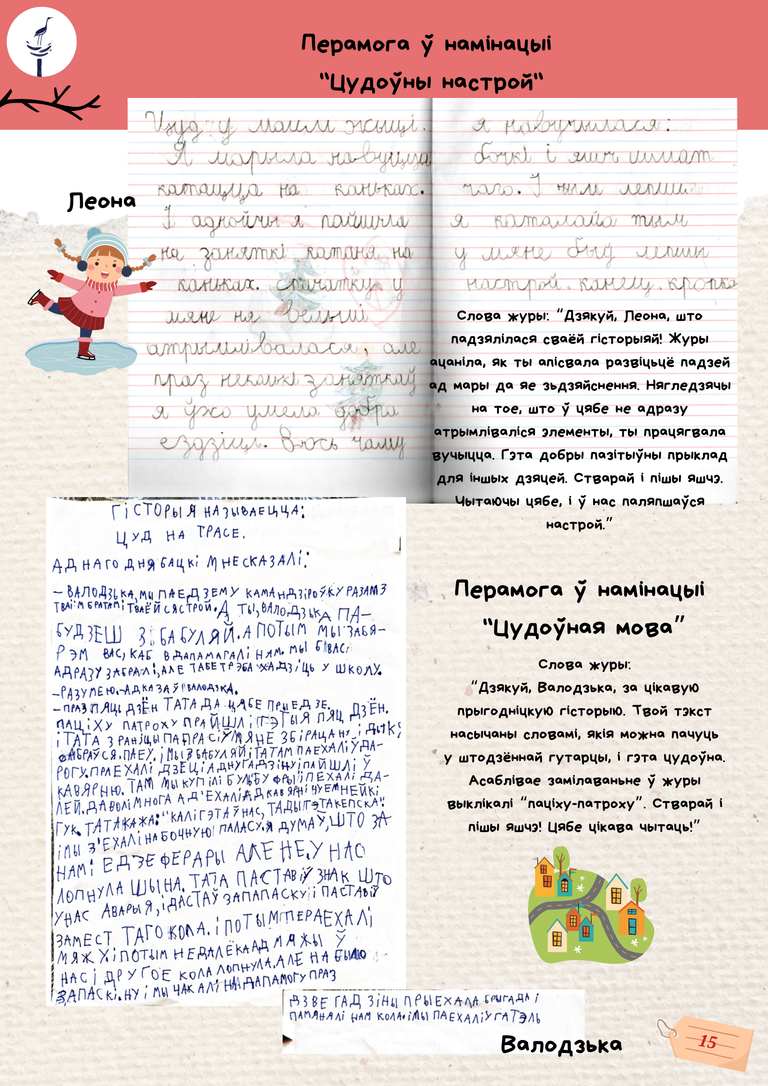 Перамога ў намінацыі
"Цудоўны настрой"
Леона
Цуд у маим жыцці.
Я марыла навучица
катацца на каньках.
І аднойчы я пайшла
на заняткі катаня на
каньках. спачатку у
мяне ня вельмі
атрымлівалася, але
праз некалькі заняткаў
я ўжо умела добра
ездзіць. Вось чаму
я навучылася:
бочкі і яшч шмат
чаго. І чым лепши
я каталайа тым
у мяне быў лепшы
настрой. канец. кропка
Слова журы: "Дзякуй, Леона, што
падзялілася сваёй гісторыяй! Журы
ацаніла, як ты апісвала развіцьцё падзей
ад мары да яе зьдзяйснення. Нягледзячы
на тое, што ў цябе не адразу
атрымліваліся элементы, ты працягвала
вучыцца. Гэта добры пазітыўны прыклад
для іншых дзяцей. Стварай і пішы яшчэ.
Чытаючы цябе, і ў нас паляпшаўся
настрой."
ГІСТОРЫЯ НАЗЫВАЕЦЦА:
ЦУД НА ТРАСЕ.
АДНАГО ДНЯ БАЦКІ МНЕ СКАЗАЛІ:
– ВАЛОДЗЬКА, МЫ ПАЕДЗЕМ У КАМАНДЗІРОЎКУ РАЗАМ З
ТВАІМ БРАТАМ І ТВАЁЙ СЯСТРОЙ. А ТЫ, ВАЛОДЗЬКА ПА–
БУДЗЕШ З БАБУЛЯЙ. А ПОТЫМ МЫ ЗАБЯ–
РЭМ ВАС, КАБ В ДАПАМАГАЛІ НАМ. МЫ Б ВАС
АДРАЗУ ЗАБРАЛІ, АЛЕ ТАБЕ ТРЭБА ХАДЗІЦЬ У ШКОЛУ.
–РАЗУМЕЮ. АДКАЗАЎ ВАЛОДЗЬКА.
–ПРАЗ ПЯЦЬ ДЗЁН ТАТА ДА ЦЯБЕ ПРЫЕДЗЕ.
ПАЦІХУ ПАТРОХУ ПРАЙШЛІ ГЭТЫЯ ПЯЦ ДЗЁН.
І ТАТА З РАНІЦЫ ПАПРАСІЎ МЯНЕ ЗБІРАЦА НУ І
САБРАЎСЯ. ПАЕУ, І МЫ З БАБУЛЯЙ І ТАТАМ ПАЕХАЛІ Ў ДА–
РОГУ. ПРАЕХАЛІ ДЗЕЦІ АДНУ ГАДЗІНУ І ПАЙШЛІ Ў
КАВЯРНЮ. ТАМ МЫ КУПІЛІ БУЛЬБУ ФРЫ І ПЕХАЛІ ДА–
ЛЕЙ. ДАВОЛІ МНОГА АДʼЕХАЛІ АД КАВЯРНІ ЧУЕМ НЕЙКІ
ГУК. ТАТА КАЖА: "КАЛІ ГЭТА Ў НАС, ТАДЫ ГЭТА КЕПСКА."
І МЫ ЗʼЕХАЛІ НА БОЧНУЮ ПАЛАСУ. Я ДУМАЎ, ШТО ЗА
НАМІ ЕДЗЕ ФЕРАРЫ АЛЕ НЕ. У НАС
ЛОПНУЛА ШЫНА. ТАТА ПАСТАВІЎ ЗНАК ШТО
УНАС АВАРЫЯ, І ДАСТАЎ ЗАПАПАСКУ І ПАСТАВІЎ
ЗАМЕСТ ТАГО КОЛА. І ПОТЫМ ПЕРАЕХАЛІ
МЯЖУ І ПОТЫМ НЕДАЛЁКА АД МЯЖЫ Ў
НАС І ДРУГОЕ КОЛА ЛОПНУЛА. АЛЕ НА БЫЛО
ЗАПАСКІ. НУ І МЫ ЧАКАЛІ НА ДАПАМОГУ ПРАЗ
ДЗВЕ ГАДЗІНЫ ПРЫЕХАЛА БРЫГАДА І
ПАМАНЯЛІ НАМ КОЛА І МЫ ПАЕХАЛІ Ў ГАТЭЛЬ
Перамога ў намінацыі
"Цудоўная мова"
Слова журы:
"Дзякуй, Валодзька, за цікавую
прыгодніцкую гісторыю. Твой тэкст
насычаны словамі, якія можна пачуць
у штодзённай гутарцы, і гэта цудоўна.
Асаблівае замілаваньне ў журы
выклікалі "паціху-патроху". Стварай і
пішы яшчэ! Цябе цікава чытаць!"
Валодзька
15